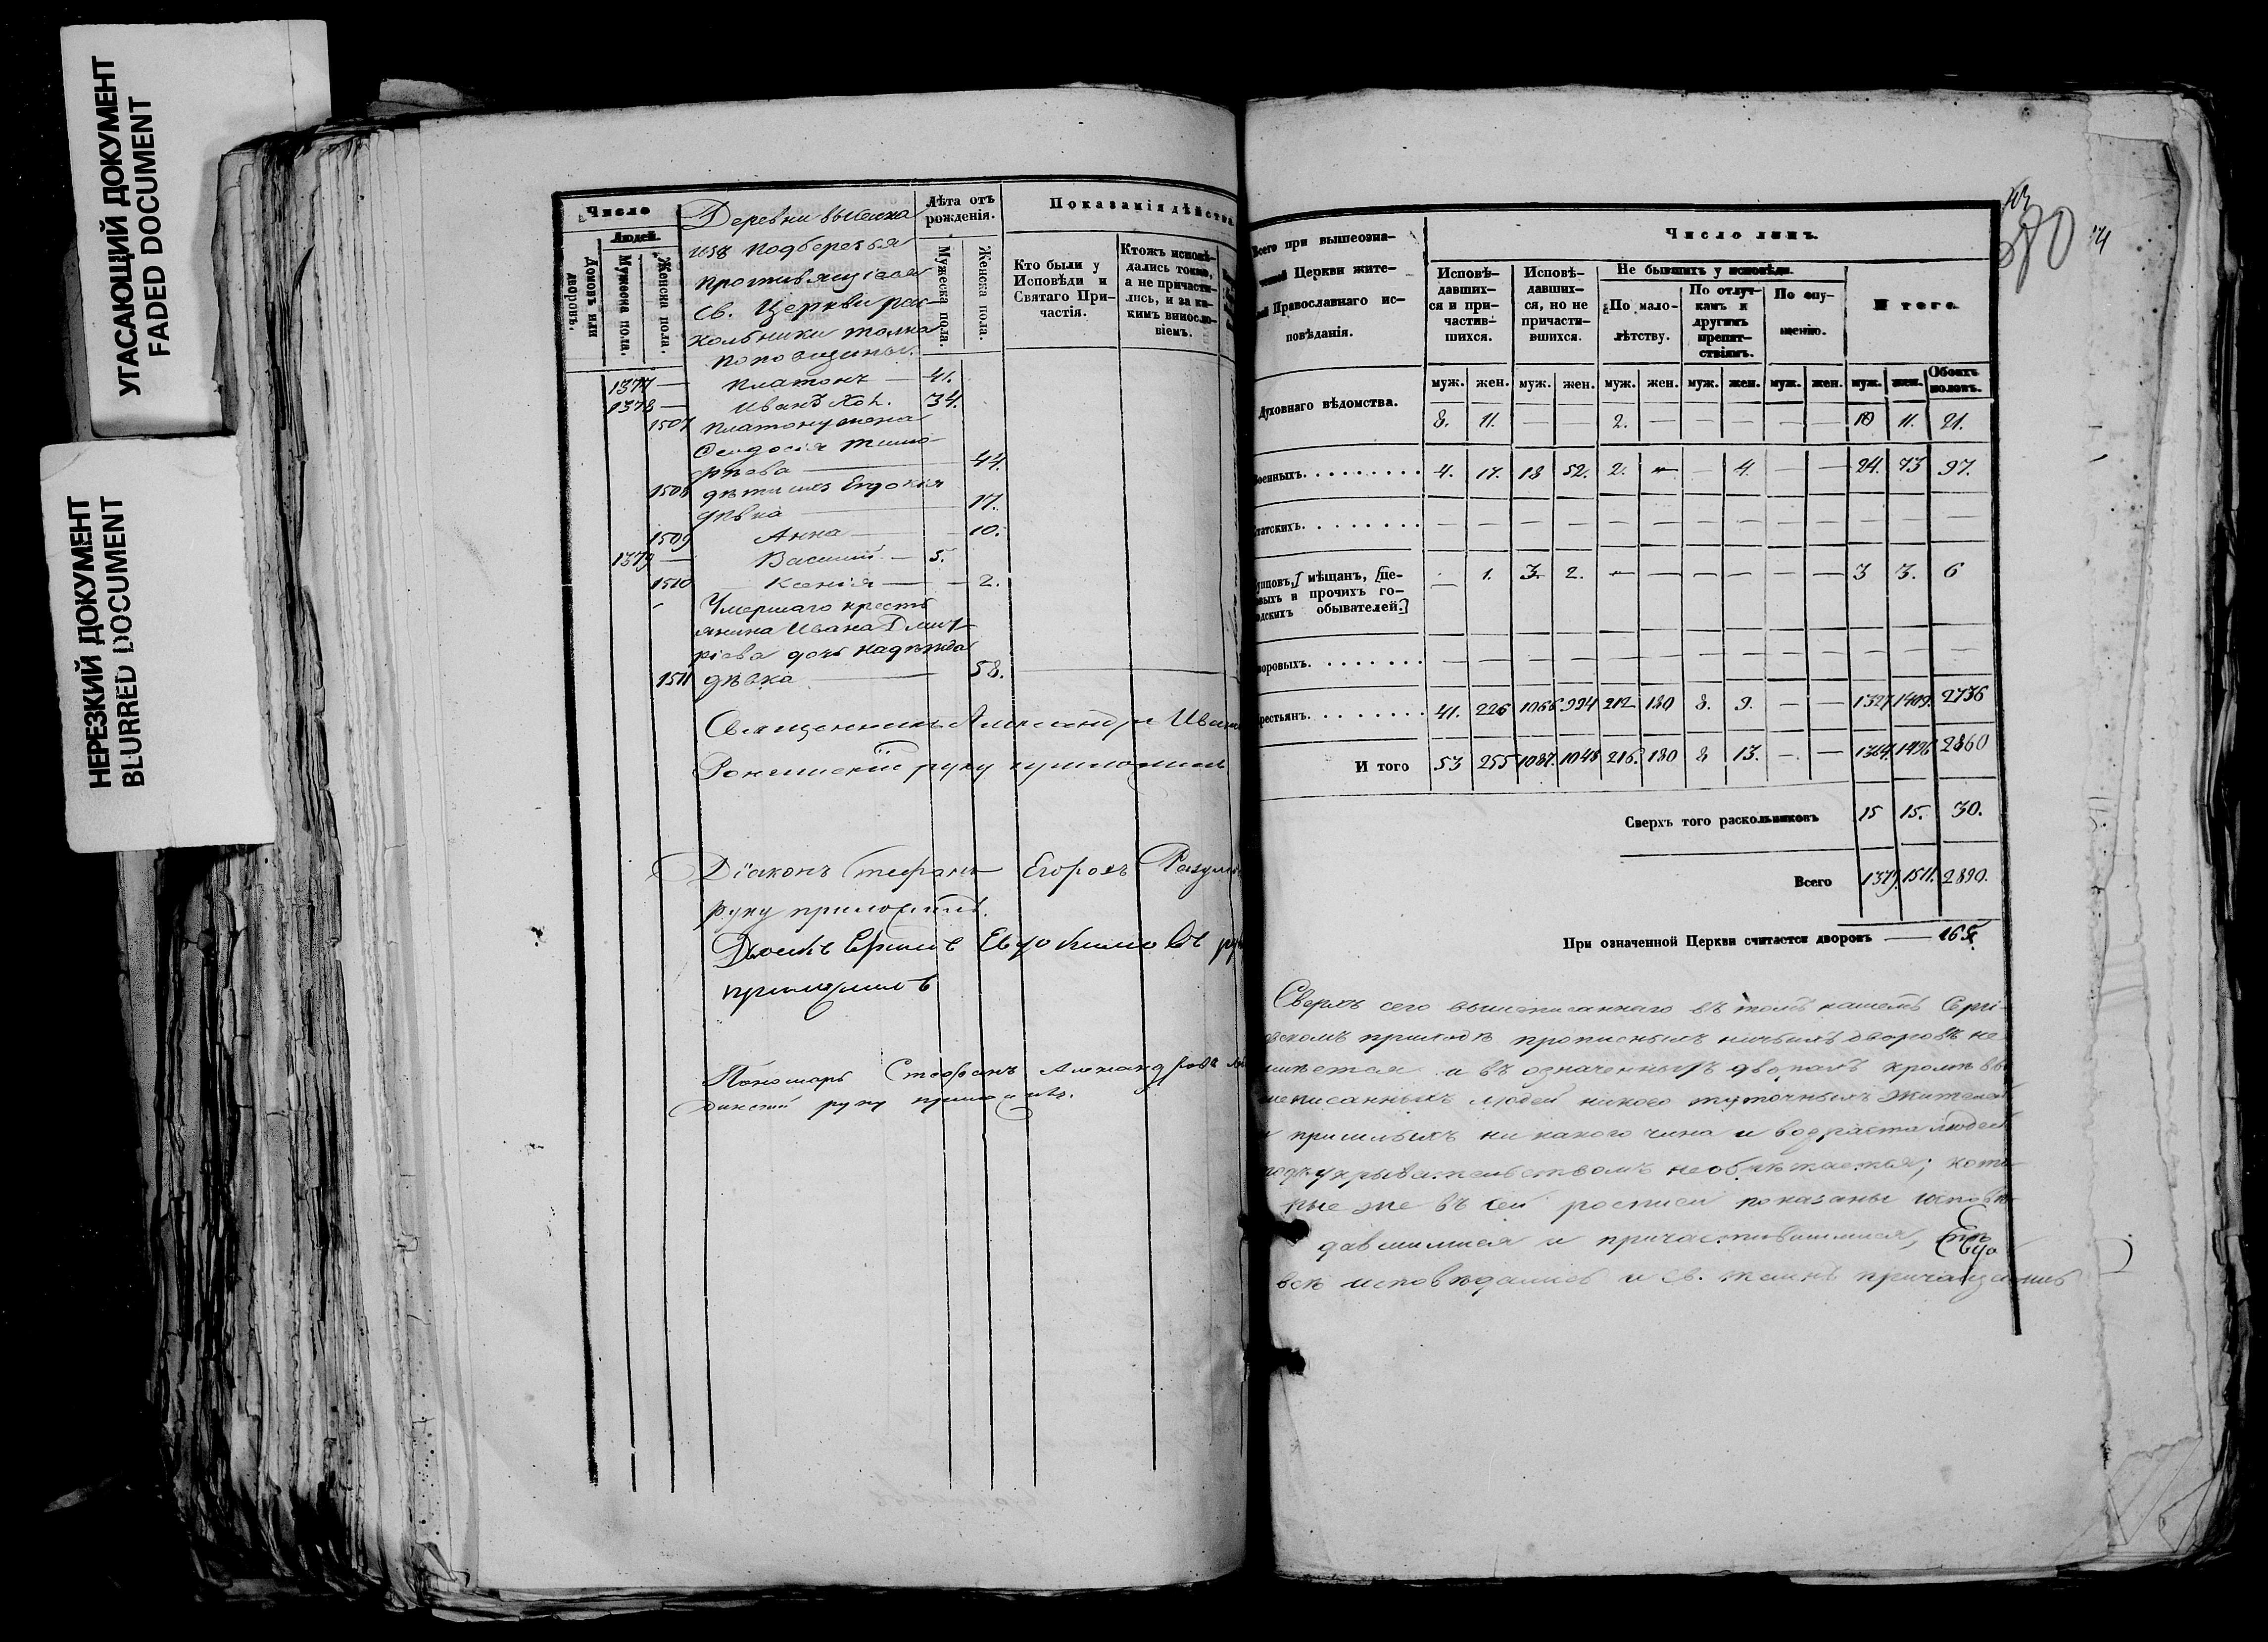 УГАСАЮЩИЙ ДОКУМЕНТ
FADED DOCUMENT
НЕРЕЗКИЙ ДОКУМЕНТ
BLURRED DOCUMENT
Число
Людей.
Домовъ или дворовъ.
Мужеска пола.
Женска пола.
Деревни
изъ Подберезья
св. Церкви рас-
кольники толка
поповщины.
Лѣта отъ рожденія.
Мужеска пола.
Женска пола.
Показанія дѣйства
Кто были у
Исповѣди и
Святаго При-
частія.
Ктожъ исповѣ-
дались токмо,
а не причасти-
лись, и за ка-
кимъ винословіемъ.
1377 — Платонъ — 41.
1378 — Иванъ Хол. 34.
1507 Платону жена
Ѳеодосія Тимо-
фѣева — 44.
1508 дѣти ихъ Евдокія
дѣвка — 17.
1509 Анна — 10.
1379 — Василий — 5.
1510 Ксенія — 2.
Умершаго кресть
янина Ивана Дмит-
ріева дочь Надѣжда
1511 дѣвка — 58.
Священникъ Александръ
руку приложилъ
Діаконъ Стефанъ Егоровъ
руку приложилъ.
Дьячекъ Евдокимовъ
приложилъ
Пономарь Стефанъ Александровъ
руку приложилъ.
380
74
Всего при вышеозна-
ченной Церкви жите-
лей Православнаго ис-
повѣданія.
Число лицъ.
Исповѣ-
давших-
ся и при-
частив-
шихся.
Исповѣ-
давших-
ся, но не
причасти-
вшихся.
Не бывшихъ у исповѣди.
По мало-
лѣтству.
По отлуч-
камъ и
другимъ
препят-
ствіямъ.
По опу-
щенію.
Итого.
муж. жен. муж. жен. муж. жен. муж. жен. муж. жен. муж. жен. Обоихъ половъ.
Духовнаго вѣдомства. 8. 11. — — 2. — — — — — 10 11. 21.
Военныхъ. 4. 17. 18 52. 2. — — 4. — — 24. 73 97.
Статскихъ. — — — — — — — — — — — — —
Купцовъ, мѣщанъ, це-
ховыхъ и прочихъ го-
родскихъ обывателей. — 1. 3. 2. — — — — — — 3 3. 6
Дворовыхъ. — — — — — — — — — — — — —
Крестьянъ. 41. 226 1066 994 212 180 8. 9. — — 1327 1409. 2736
И того 53 255 1087. 1048 216. 180 8 13. — — 1364. 1496. 2860
Сверхъ того раскольниковъ 15 15. 30.
Всего 1379. 1511. 2890.
При означенной Церкви считается дворовъ —
Сверхъ сего вышеписаннаго въ томъ нашемъ
приходѣ прописныхъ ничьихъ дворовъ не
имѣется и въ означенныхъ дворахъ кромѣ вы
шеписанныхъ людей никого туточныхъ жителей
и пришлыхъ ни какого чина и возраста людей
подъ укрывательствомъ необрѣтается; кото-
рые же въ сей росписи показаны исповѣ-
давшимися и причастившимися,
всѣ исповѣдались и св. таинъ причащались